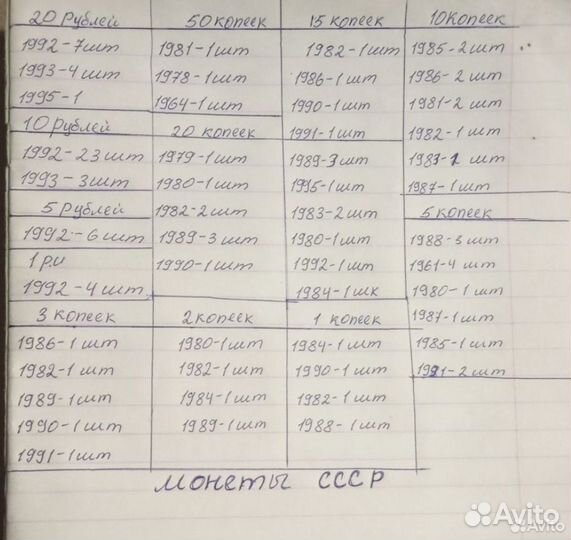 20 Рублей
1992-7шт
1993-4 шт
1995-1
10 рублей
1992-23 шт
1993-3шт
5 рублей
1992-6 шт
1 ри
1992-4 шт
3 копеек
1986-1 шт
1982-1 шт
1989-1 шт
1990-1 шт
1991-1 шт
50 копеек
1981-1шт
1978-1шт
1964-1 шт
20 копеек
1979-1 шт
1980-1шт
1982-2 шт
1989-3 шт
1990-1шт
2 копеек
1980-1 шт
1982-1 шт
1984-1 шт
1989-1 шт
15 копеек
1982-1шт
1986-1 шт
1990-1 шт
1991-1 шт
1989-3 шт
1995-1шт
1983-2 шт
1980-1шт
1992-1 шт
1984-1 шк
1 копеек
1984-1шт
1990-1 шт
1982-1 шт
1988-1 шт
10 Копеек
1985-2 шт
1986-2 шт
1981-2 шт
1982-1 шт
шт
1987-1шт
5 копеек
1988-3 шт
1961-4 шт
1980-1 шт
1987-1шт
1985-1 шт
2 шт
монеты СССР
Avito
Avito